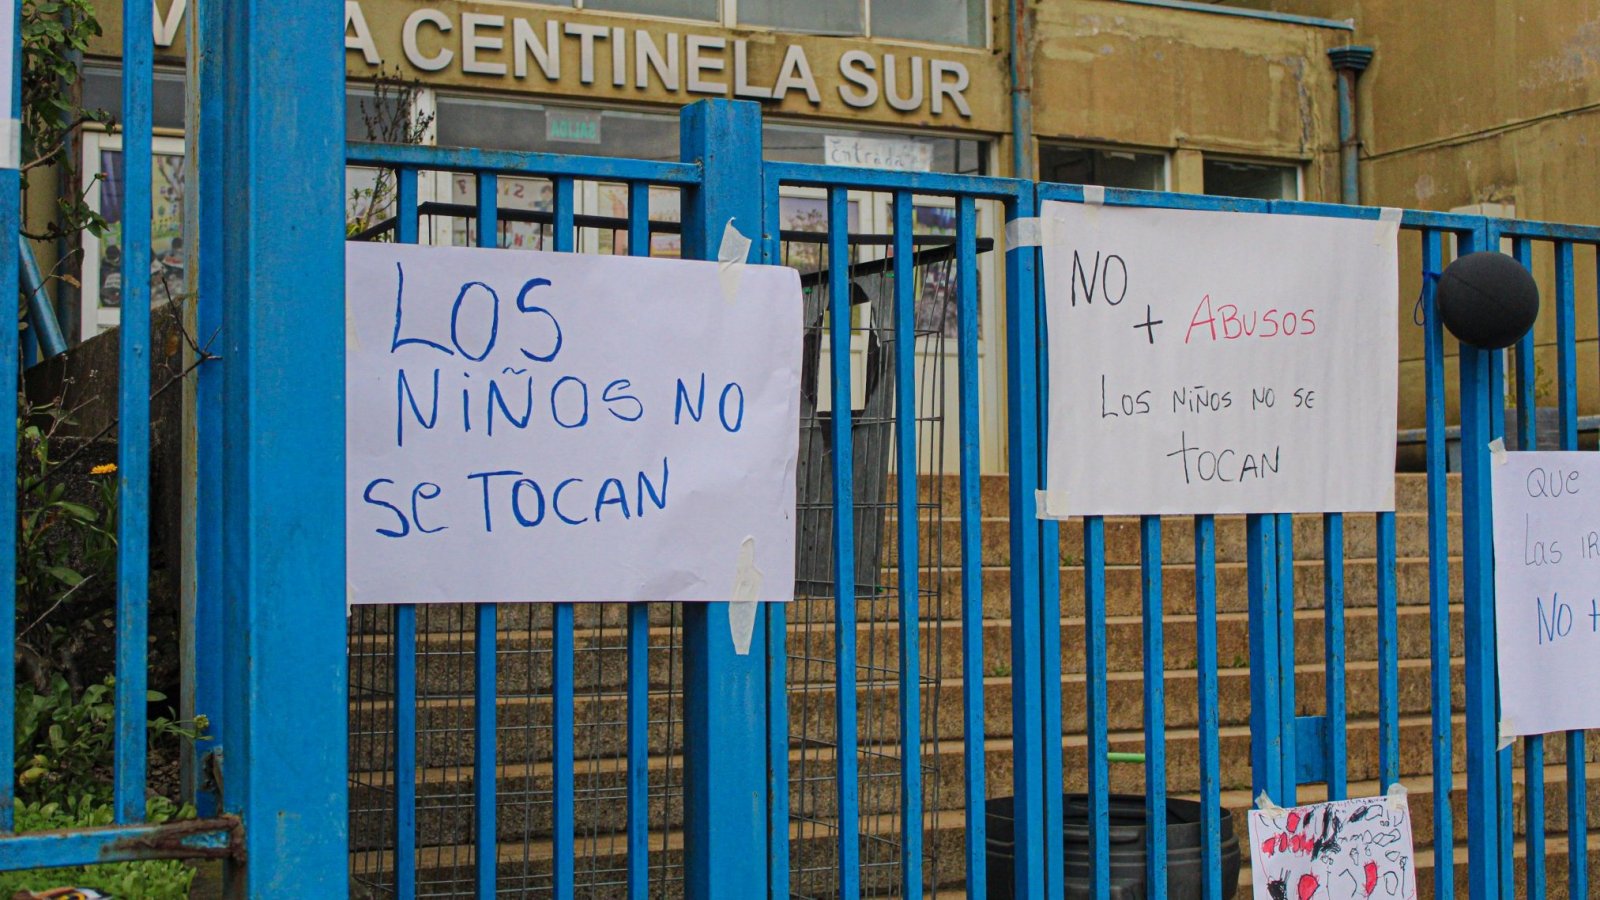 A CENTINELA SUR
SALIDA
Entrada
LOS
NiÑOS NO
Se TOCAN
NO
+ ABUSOS
LOS NiÑOS NO SE
TOCAN
QUE
Las
NO +